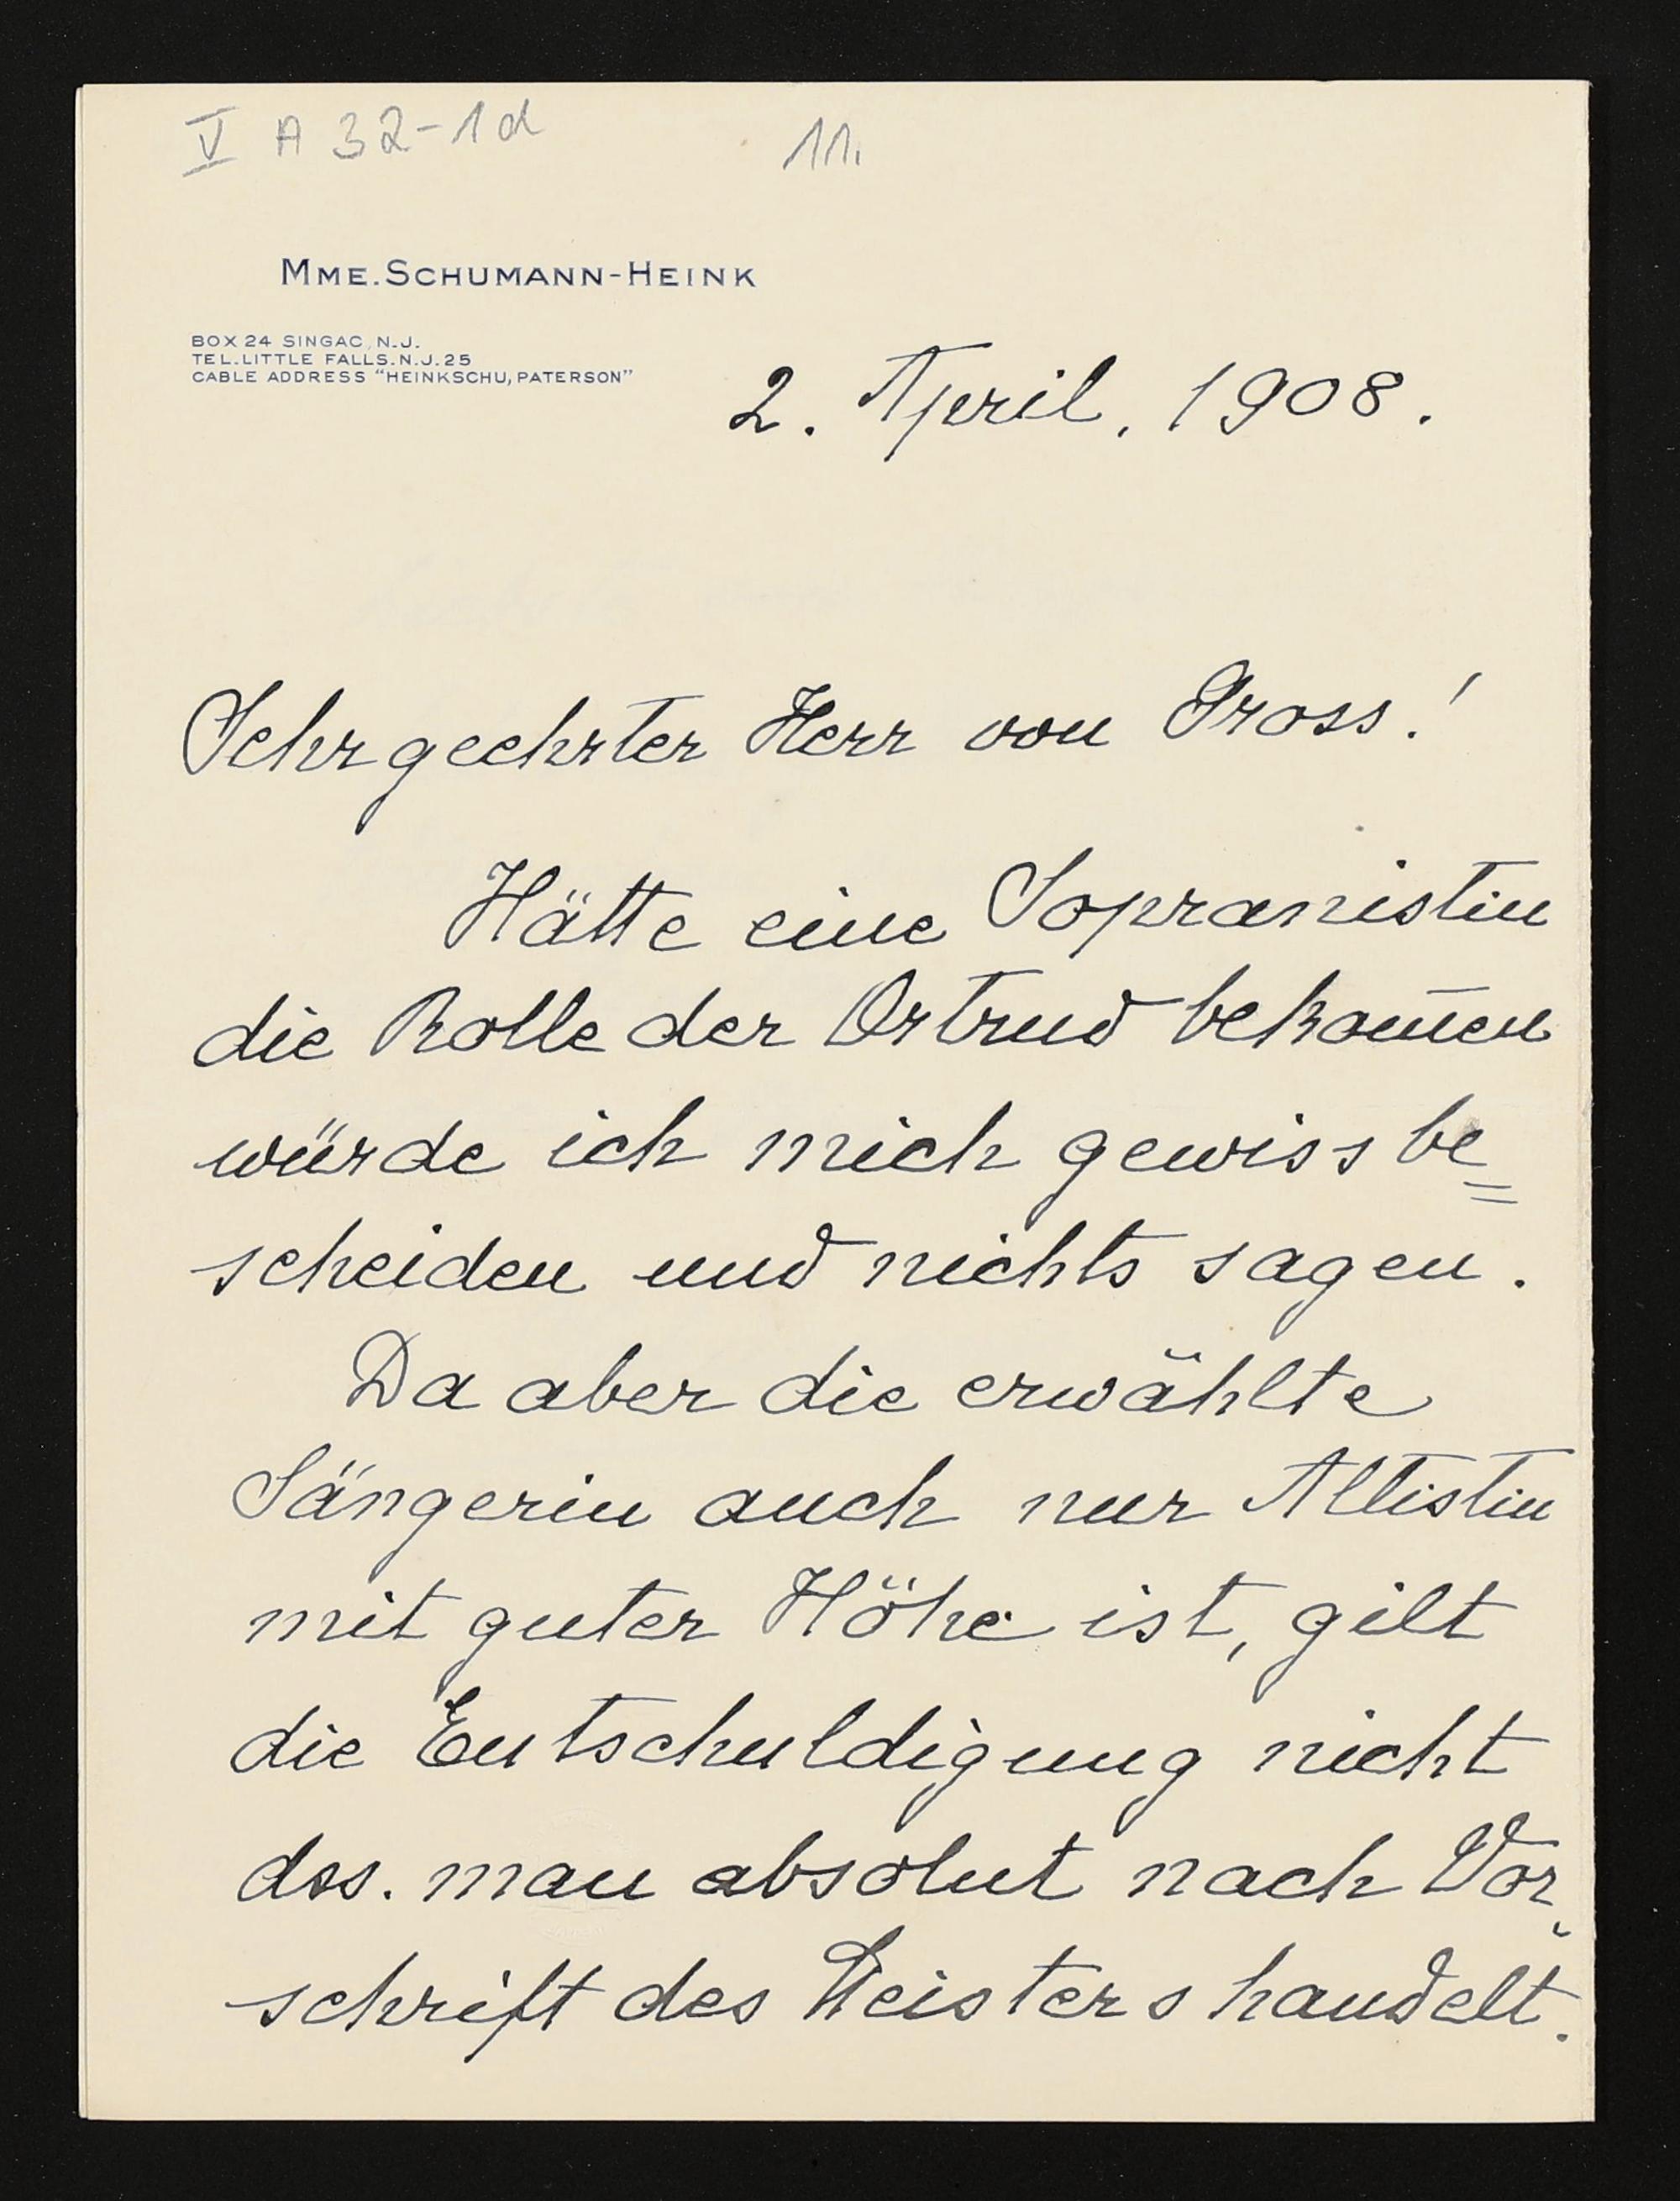 V A 32-1d
11.
MME. SCHUMANN-HEINK
BOX 24 SINGAC, N.J.
TEL. LITTLE FALLS. N.J. 25
CABLE ADDRESS "HEINKSCHU, PATERSON"
2. April, 1908.
Sehr geehrter Herr von Gross!
Hätte eine Sopranistin
die Rolle der Ortrud bekom̄en
würde ich mich gewiss be=
scheiden und nichts sagen.
Da aber die erwählte
Sängerin auch nur Altistin
mit guter Höhe ist, gilt
die Entschuldigung nicht
dss. man absolut nach Vor-
schrift des Meisters handelt.